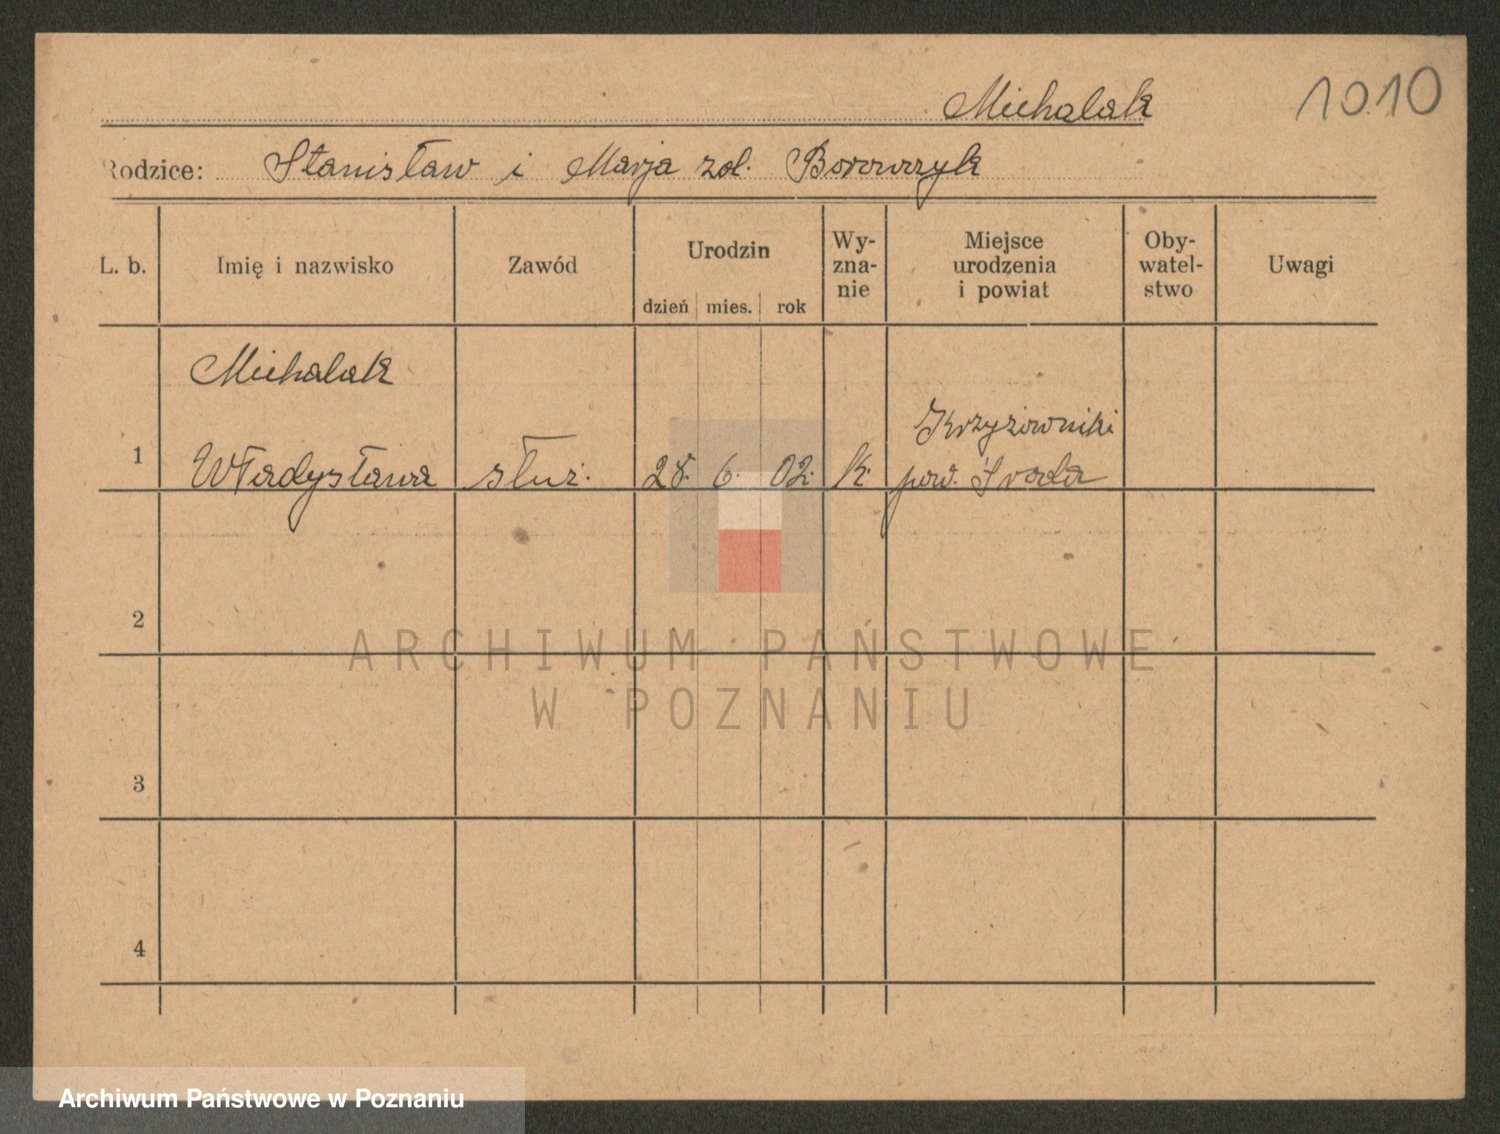 Michalak 1010
Rodzice: Stanisław i Marja zd. Borowczyk
L. b. Imię i nazwisko Zawód Urodzin dzień mies. rok Wy-zna-nie Miejsce urodzenia i powiat Oby-watel-stwo Uwagi
Michalak
Krzyżowniki
1 Władysława służ. 28. 6. 02. k. pow. Środa
2
ARCHIWUM PAŃSTWOWE
W POZNANIU
3
4
Archiwum Państwowe w Poznaniu